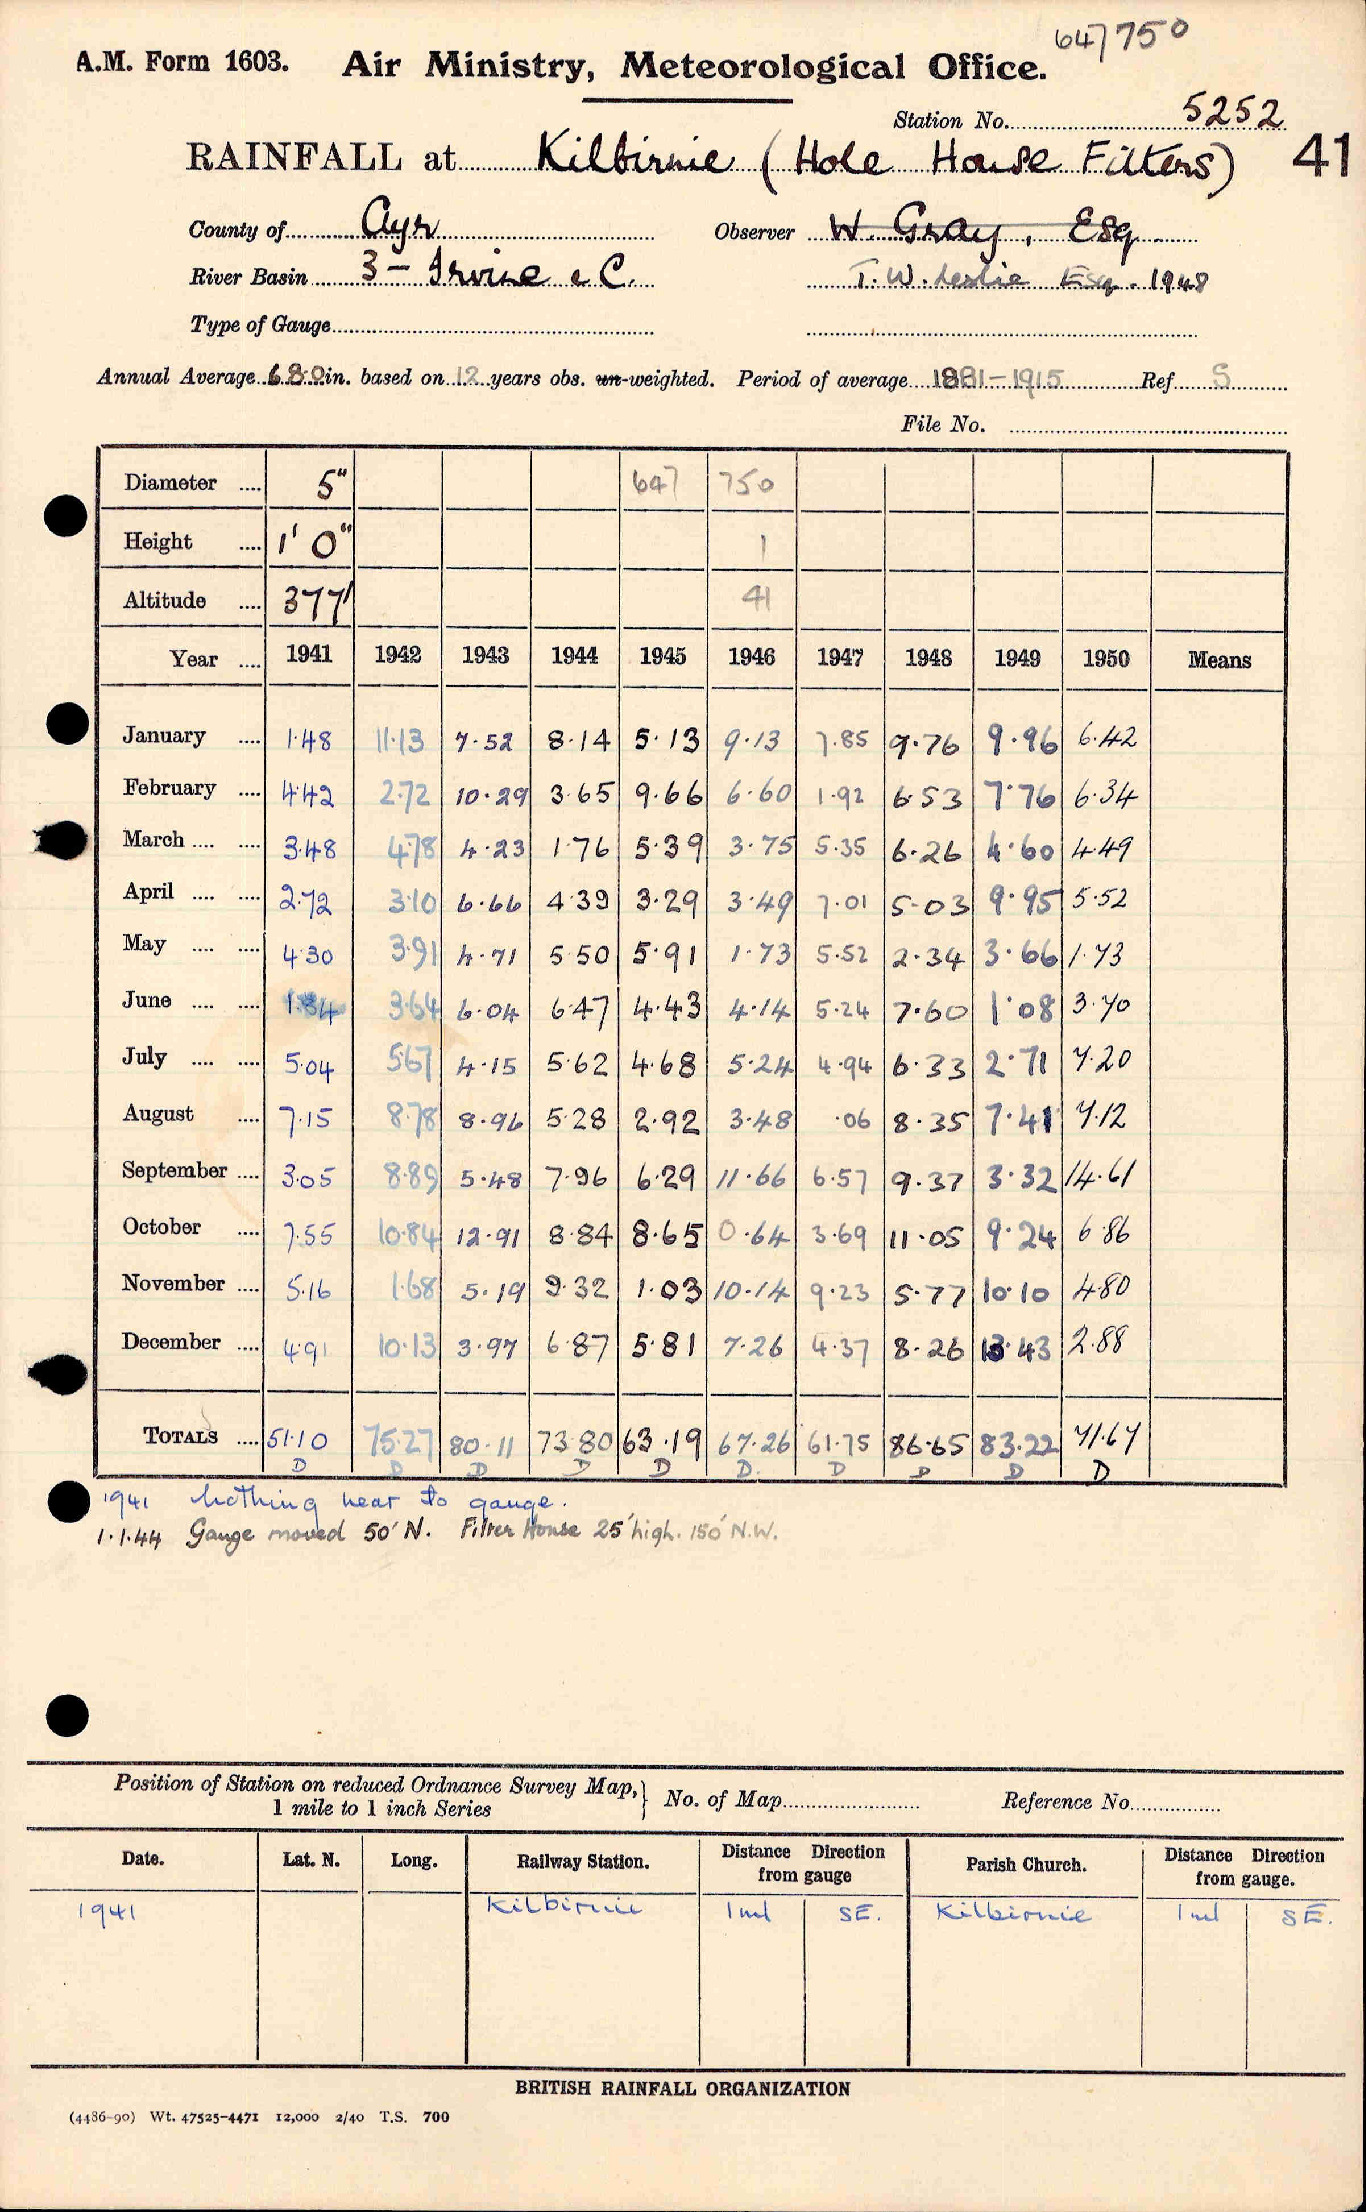 647750
A.M. Form 1603. Air Ministry, Meteorological Office.
Station No. 5252
RAINFALL at Kilbirnie (Hole House Filters) 41
County of Ayr Observer W. Gray, Esq
River Basin 3 - Irvine &C. T. W. Leslie Esq. 1948
Type of Gauge
Annual Average 68.0 in. based on 12 years obs. un-weighted. Period of average 1881-1915 Ref S
File No.
Diameter .... 5" 647 750
Height .... 1' 0" 1
Altitude .... 377' 41
Year .... 1941 1942 1943 1944 1945 1946 1947 1948 1949 1950 Means
January .... 1.48 11.13 7.52 8.14 5.13 9.13 7.85 9.76 9.96 6.42
February .... 4.42 2.72 10.29 3.65 9.66 6.60 1.92 6.53 7.76 6.34
March .... .... 3.48 4.78 4.23 1.76 5.39 3.75 5.35 6.26 4.60 4.49
April .... .... 2.72 3.10 6.66 4.39 3.29 3.49 7.01 5.03 9.95 5.52
May .... .... 4.30 3.91 4.71 5.50 5.91 1.73 5.52 2.34 3.66 1.73
June .... .... 1.84 3.64 6.04 6.47 4.43 4.14 5.24 7.60 1.08 3.70
July .... .... 5.04 5.67 4.15 5.62 4.68 5.24 4.94 6.33 2.71 7.20
August .... 7.15 8.78 8.96 5.28 2.92 3.48 .06 8.35 7.41 7.12
September .... 3.05 8.89 5.48 7.96 6.29 11.66 6.57 9.37 3.32 14.61
October .... 7.55 10.84 12.91 8.84 8.65 0.64 3.69 11.05 9.24 6.86
November .... 5.16 1.68 5.19 9.32 1.03 10.14 9.23 5.77 10.10 4.80
December .... 4.91 10.13 3.97 6.87 5.81 7.26 4.37 8.26 13.43 2.88
TOTALS .... 51.10 75.27 80.11 73.80 63.19 67.26 61.75 86.65 83.22 71.67
D D D D D D. D D D D
1941 Nothing near to gauge.
1.1.44 Gauge moved 50' N. Filter House 25' high. 150' N.W.
Position of Station on reduced Ordnance Survey Map, } No. of Map Reference No.
1 mile to 1 inch Series
Date. Lat. N. Long. Railway Station. Distance Direction from gauge Parish Church. Distance Direction from gauge.
1941 Kilbirnie 1 ml SE. Kilbirnie 1 ml SE.
BRITISH RAINFALL ORGANIZATION
(4486-90) Wt. 47525-4471 12,000 2/40 T.S. 700